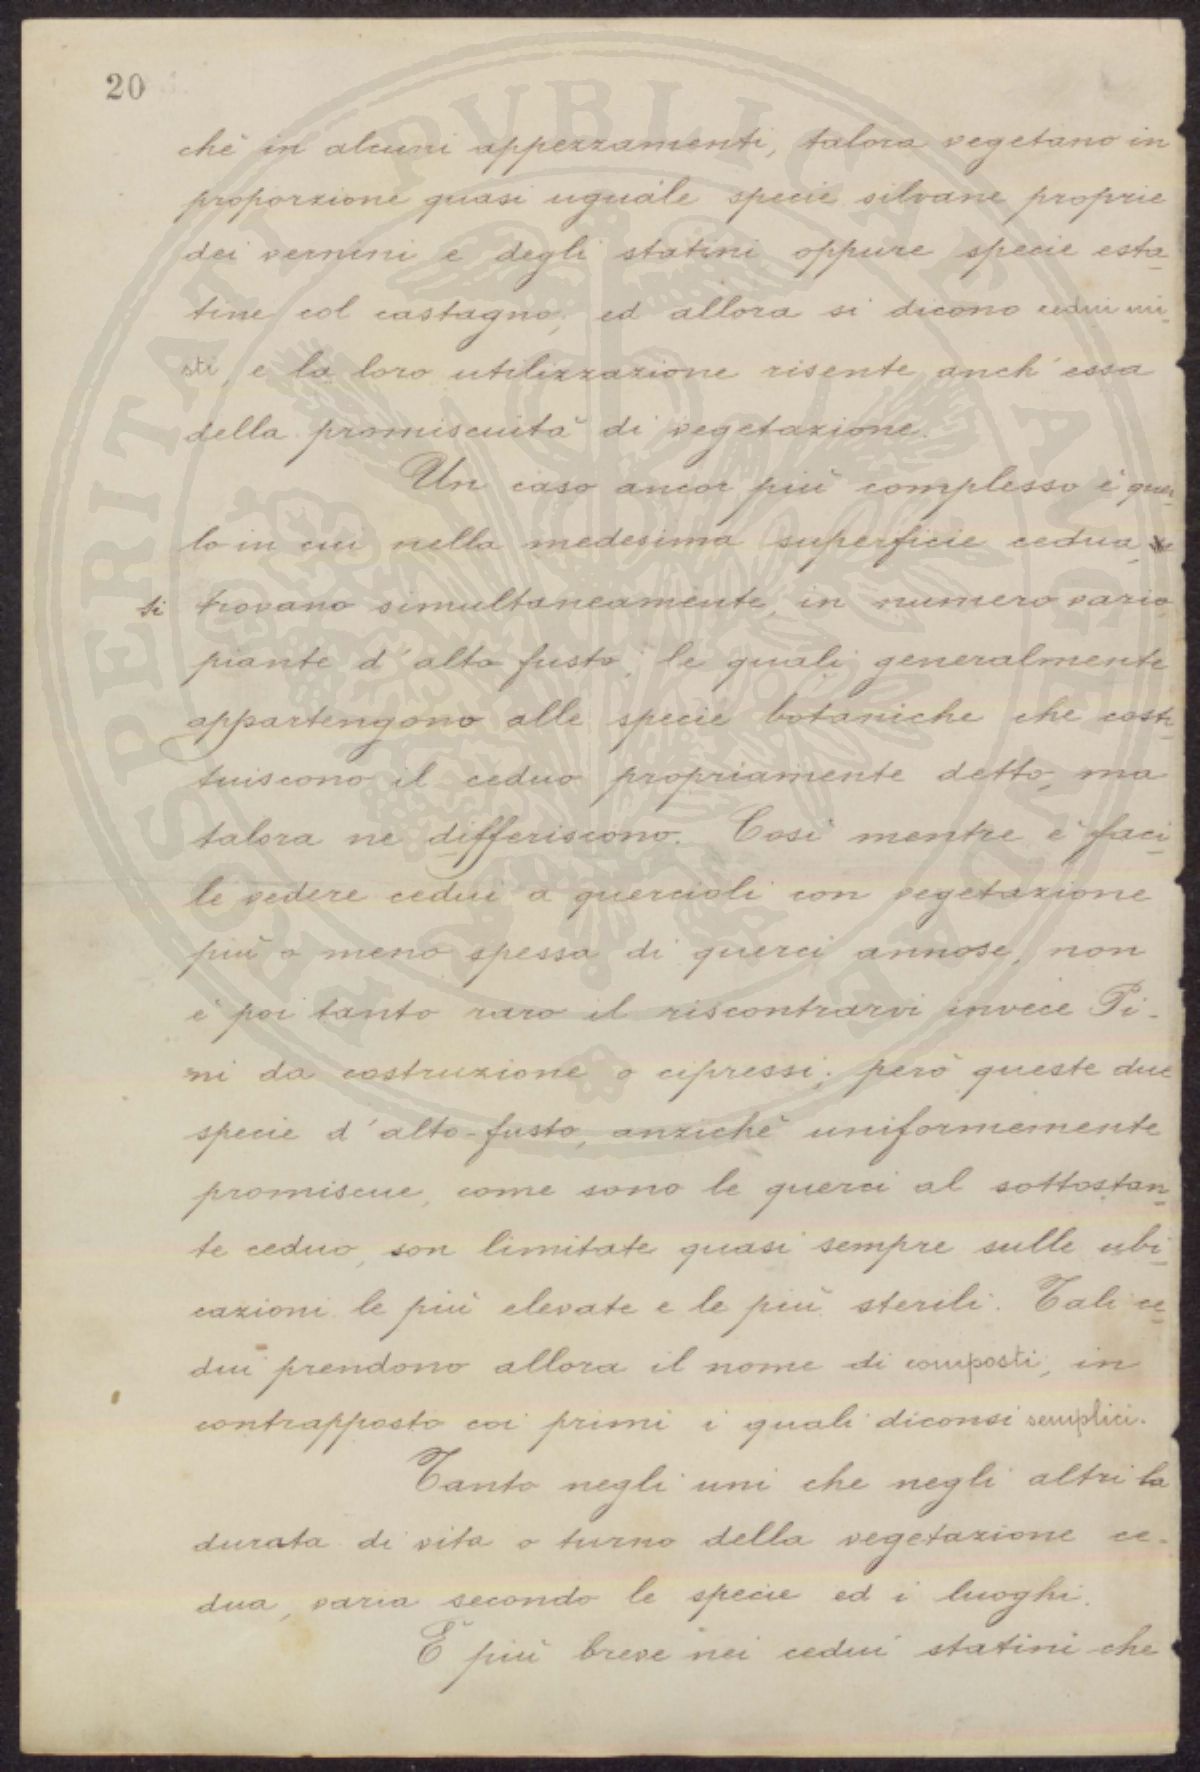 20
chè in alcuni appezzamenti, talora vegetano in
proporzione quasi uguale specie silvane proprie
dei vernini e degli statini oppure specie esta-
tine col castagno, ed allora si dicono cedui mi-
sti, e la loro utilizzazione risente anch'essa
della promiscuità di vegetazione.
Un caso ancor più complesso è quel-
lo in cui nella medesima superficie cedua,
si trovano simultaneamente, in numero vario,
piante d'alto fusto, le quali generalmente
appartengono alle specie botaniche che costi-
tuiscono il ceduo propriamente detto, ma
talora ne differiscono. Così mentre è faci-
le vedere cedui a quercioli con vegetazione
più o meno spessa di querci annose, non
è poi tanto raro il riscontrarvi invece Pi-
ni da costruzione o cipressi; però queste due
specie d'alto-fusto, anzichè uniformemente
promiscue, come sono le querci al sottostan-
te ceduo, son limitate quasi sempre sulle ubi-
cazioni le più elevate e le più sterili. Tali ce-
dui prendono allora il nome di composti, in
contrapposto coi primi i quali diconsi semplici.
Tanto negli uni che negli altri la
durata di vita o turno della vegetazione ce-
dua, varia secondo le specie ed i luoghi.
È più breve nei cedui statini che
PROSPERITATI PVBLICAE AVGENDAE